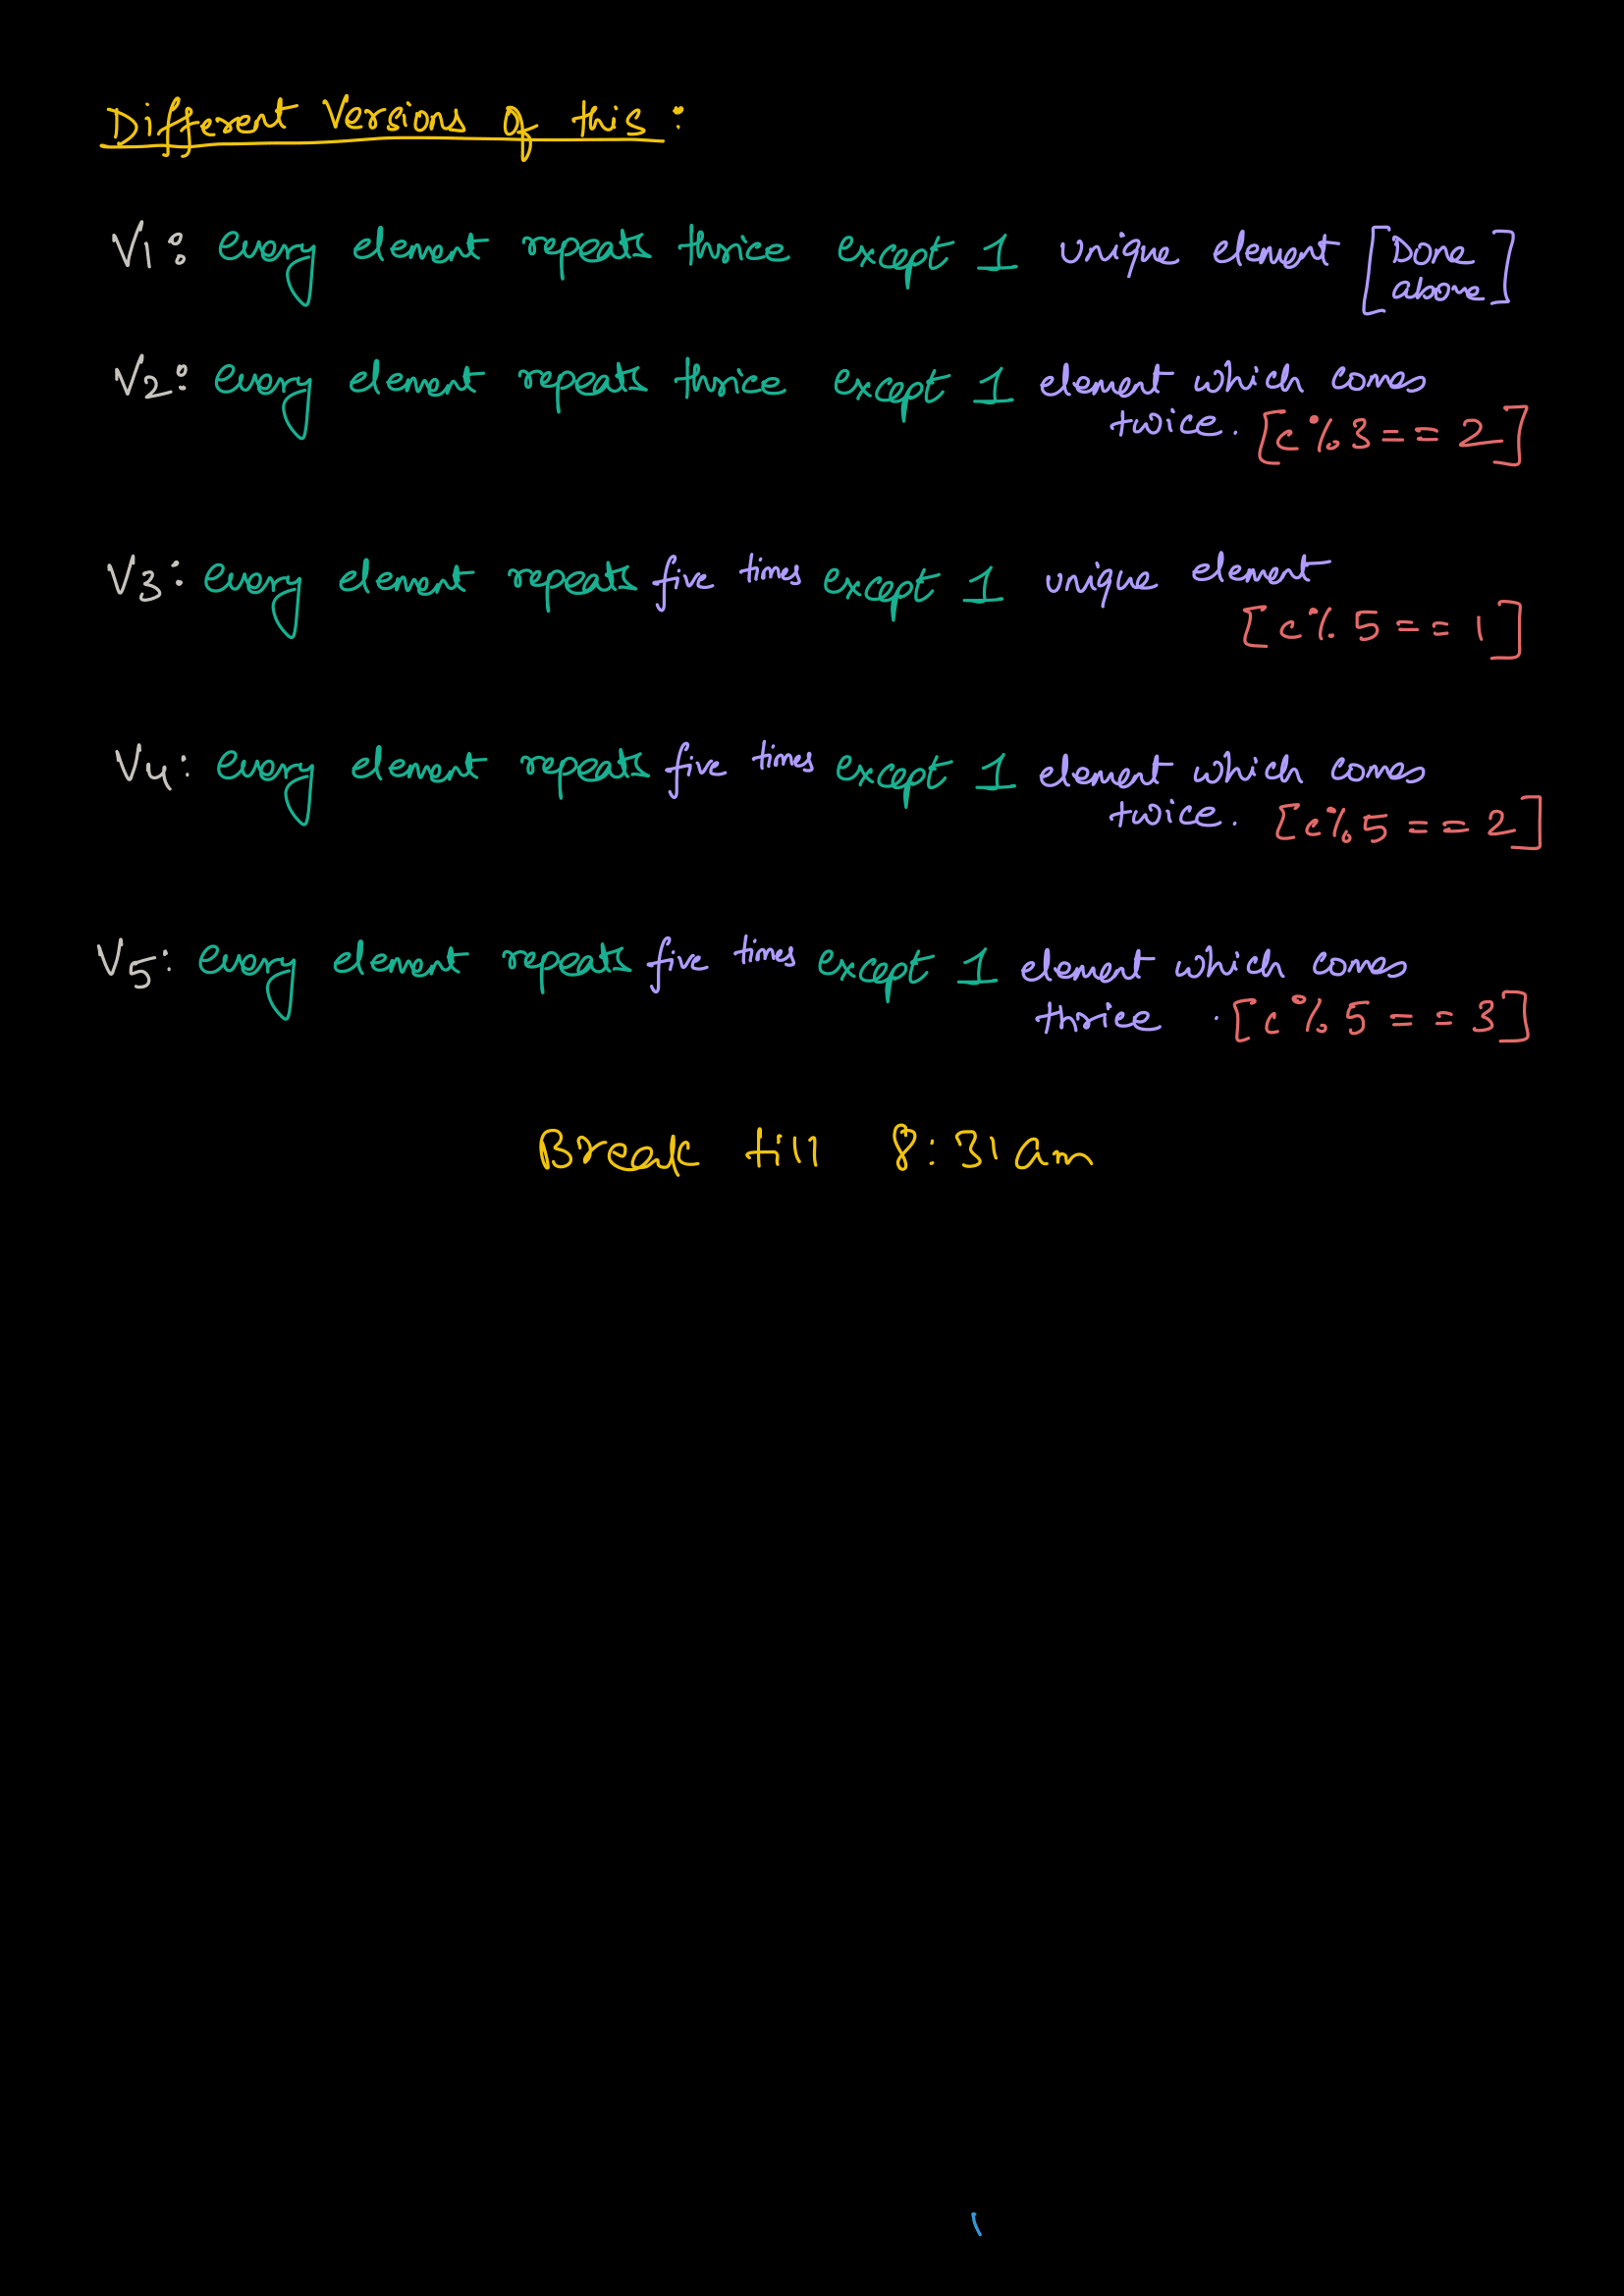 Different Versions of this:
V1: every element repeats thrice except 1 unique element [Done above]
V2: every element repeats thrice except 1 element which comes
twice. [c%3 == 2]
V3: every element repeats five times except 1 unique element
[c%5 == 1]
V4: every element repeats five times except 1 element which comes
twice. [c%5 == 2]
V5: every element repeats five times except 1 element which comes
thrice. [c%5 == 3]
Break till 8:31am